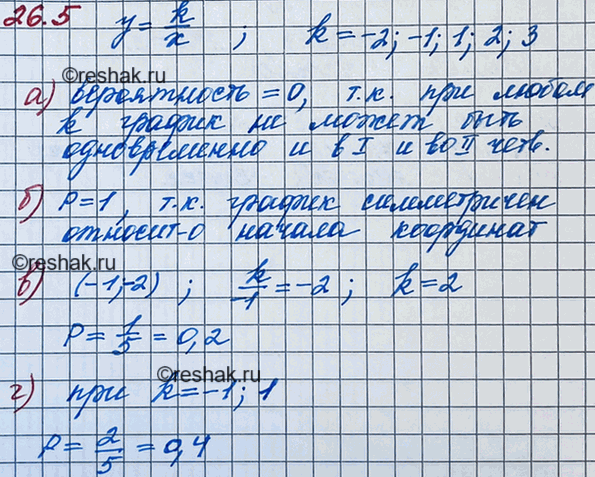 26.5 y = k/x ; k = -2; -1; 1; 2; 3
©reshak.ru
а) вероятность = 0, т.к. при любом
k график не может быть
одновременно и в I и во II четв.
б) P = 1, т.к. график симметричен
относит-о начала координат
©reshak.ru
в) (-1; -2) ; k/-1 = -2 ; k = 2
P = 1/5 = 0,2
©reshak.ru
г) при k = -1; 1
P = 2/5 = 0,4